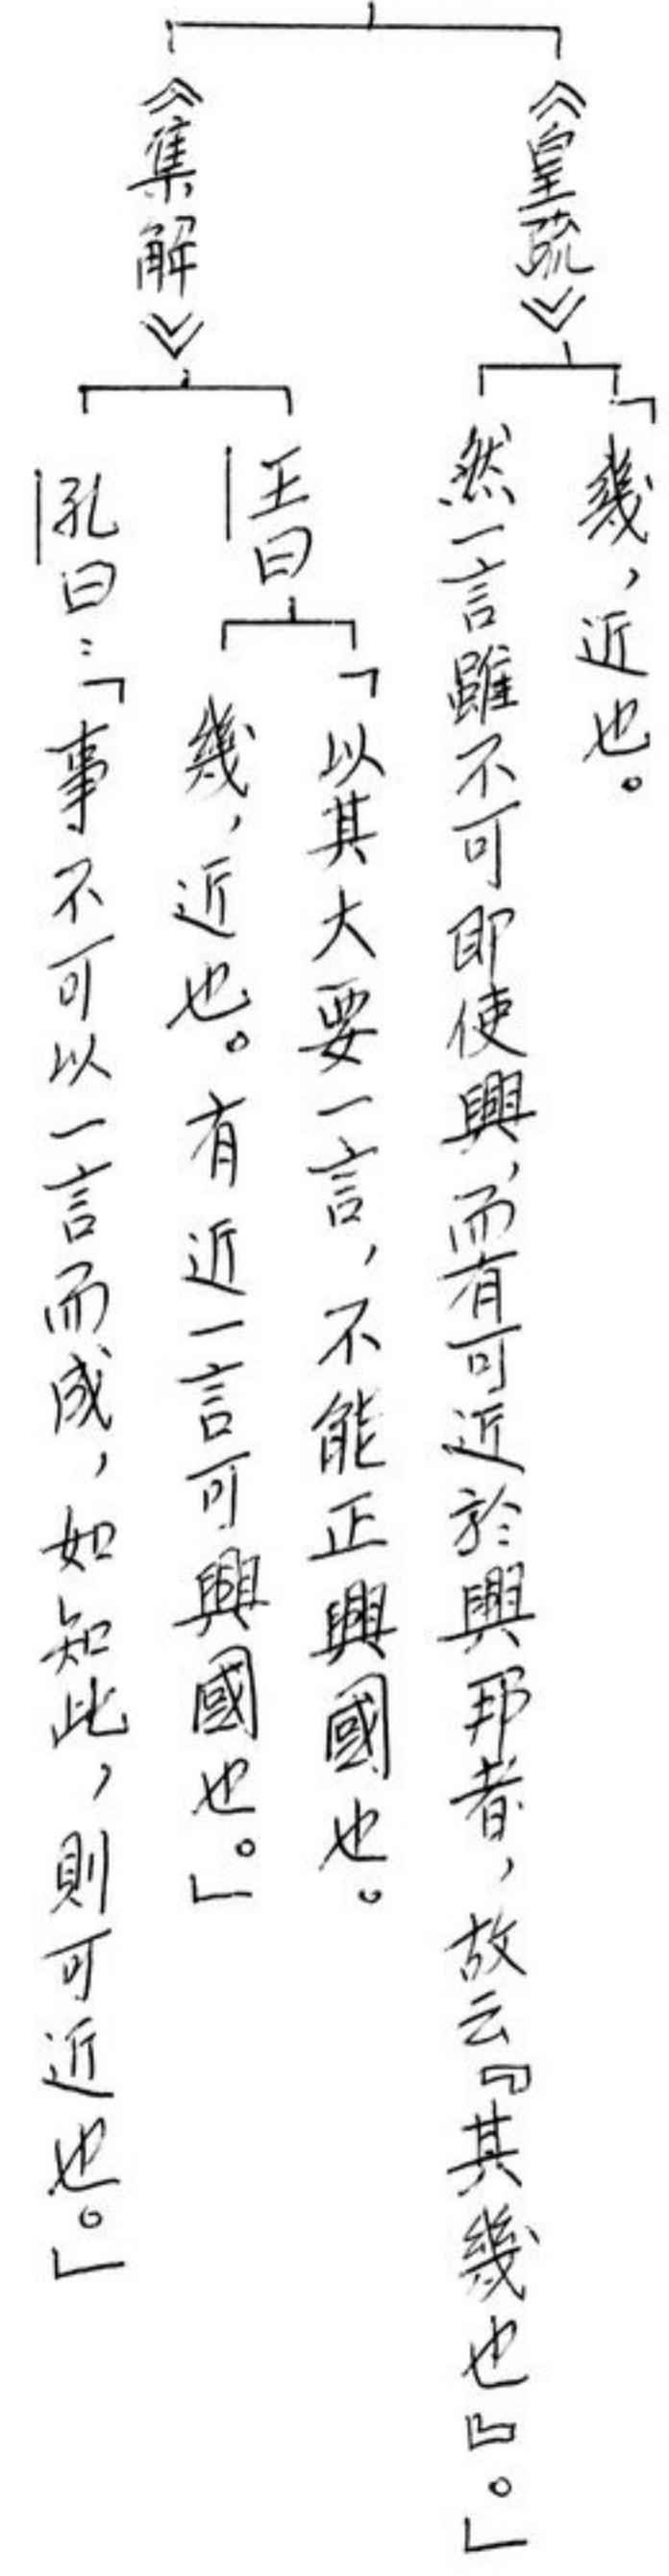 《皇疏》
「幾，近也。
然一言雖不可即使興，而有可近於興邦者，故云『其幾也』。」
《集解》
王曰
「以其大要一言，不能正興國也。
幾，近也。有近一言可興國也。」
孔曰：「事不可以一言而成，如知此，則可近也。」